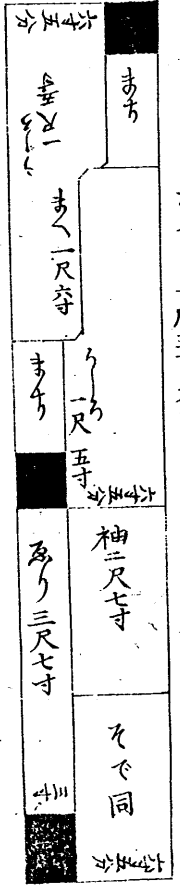 六寸五分
まち
うしろ
一尺五寸
まへ一尺六寸
まち
うしろ
一尺五寸
六寸五分
袖二尺七寸
ゑり三尺七寸
そで同
三寸
六寸五分